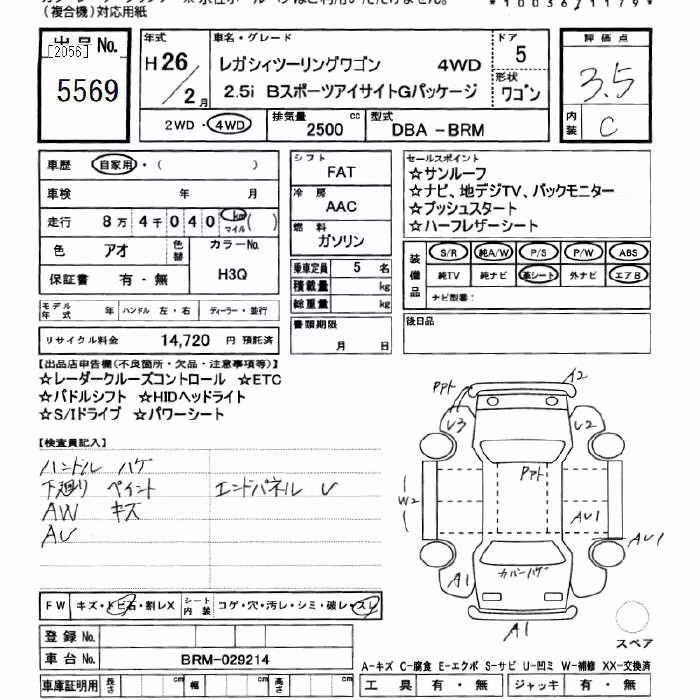 (複合機)対応用紙
*10036/1179*
出品No.
[2056]
5569
年式
H26/2月
車名・グレード
レガシィツーリングワゴン 4WD
2.5i BスポーツアイサイトGパッケージ
ドア
5
形状
ワゴン
2WD・4WD
排気量
2500
cc
型式
DBA -BRM
評価点
3.5
内装
C
車歴 自家用・( )
車検 年 月
走行 8万 4千 0 4 0 km マイル ( )
色 アオ 色替
カラーNo.
H3Q
保証書 有・無
モデル年式 年 ハンドル 左・右 ディーラー・並行
リサイクル料金 14,720 円 預託済
シフト
FAT
冷房
AAC
燃料
ガソリン
乗車定員 5 名
積載量 kg
総重量 kg
書類期限
月 日
セールスポイント
☆サンルーフ
☆ナビ、地デジTV、バックモニター
☆プッシュスタート
☆ハーフレザーシート
装備品
S/R 純A/W P/S P/W ABS
純TV 純ナビ 革シート 外ナビ エアB
ナビ型番:
後日品
【出品店申告欄(不良箇所・欠品・注意事項等)】
☆レーダークルーズコントロール ☆ETC
☆パドルシフト ☆HIDヘッドライト
☆S/Iドライブ ☆パワーシート
【検査員記入】
ハンドル ハゲ
下廻り ペイント エンドパネル U
AW キズ
AU
A2
U3
U2
W2
AU1
AU1
カバーハゲ
A1
A1
スペア
FW キズ・トビ石・割レX シート内装 コゲ・穴・汚レ・シミ・破レ・スレ
登録No.
車台No. BRM-029214
車庫証明用 長さ cm 幅 cm 高さ cm
A-キズ C-腐食 E-エクボ S-サビ U-凹ミ W-補修 XX-交換済
工具 有・無 ジャッキ 有・無